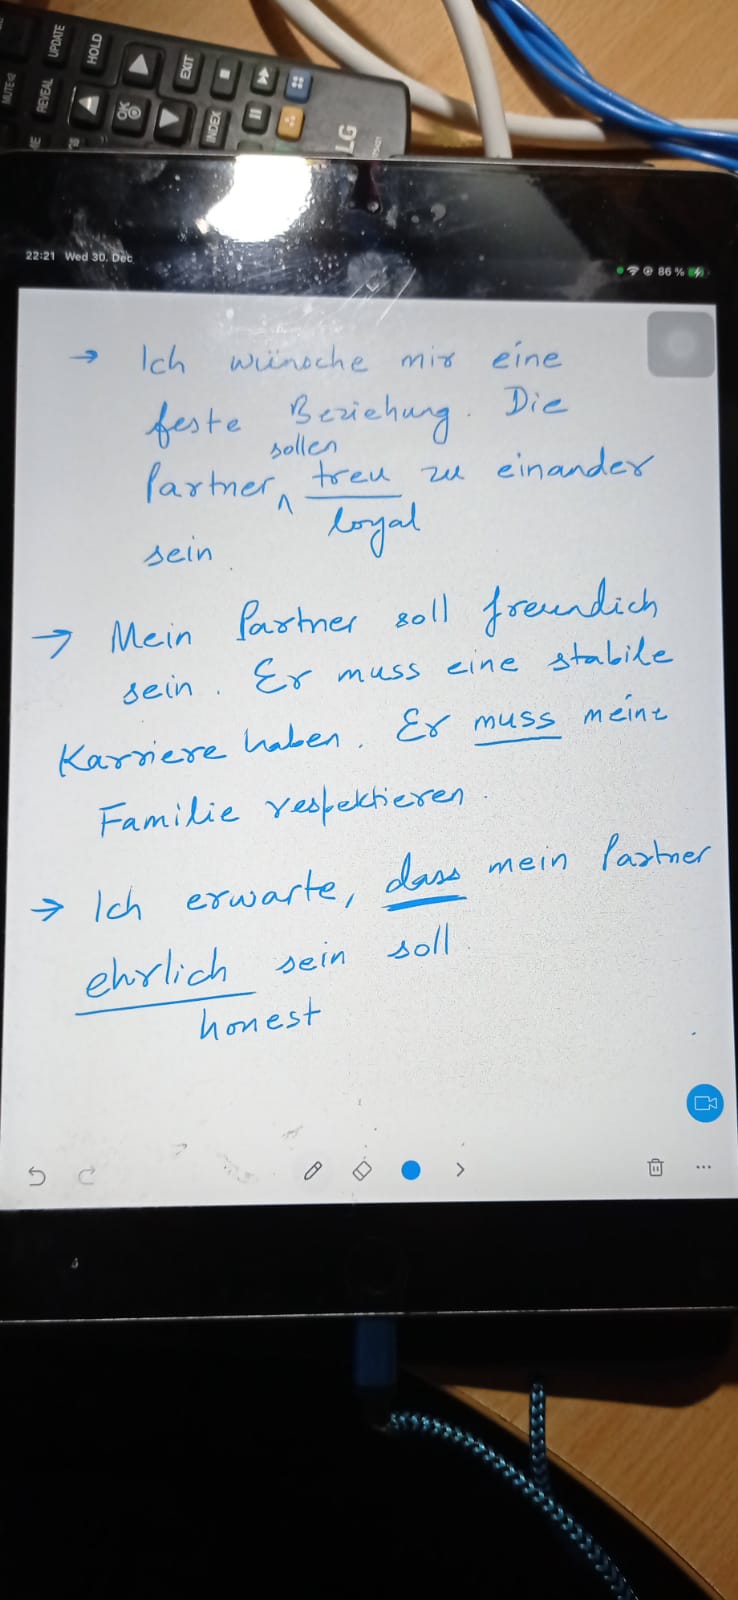 UPDATE
HOLD
MUTE
REVEAL
EXIT
OK
INDEX
LG
22:21 Wed 30. Dec
86 %
→ Ich wünsche mir eine
feste Beziehung. Die
sollen
Partner ^ treu zu einander
loyal
sein.
→ Mein Partner soll freundich
sein. Er muss eine stabile
Karriere haben. Er muss meine
Familie respektieren.
→ Ich erwarte, dass mein Partner
ehrlich sein soll.
honest